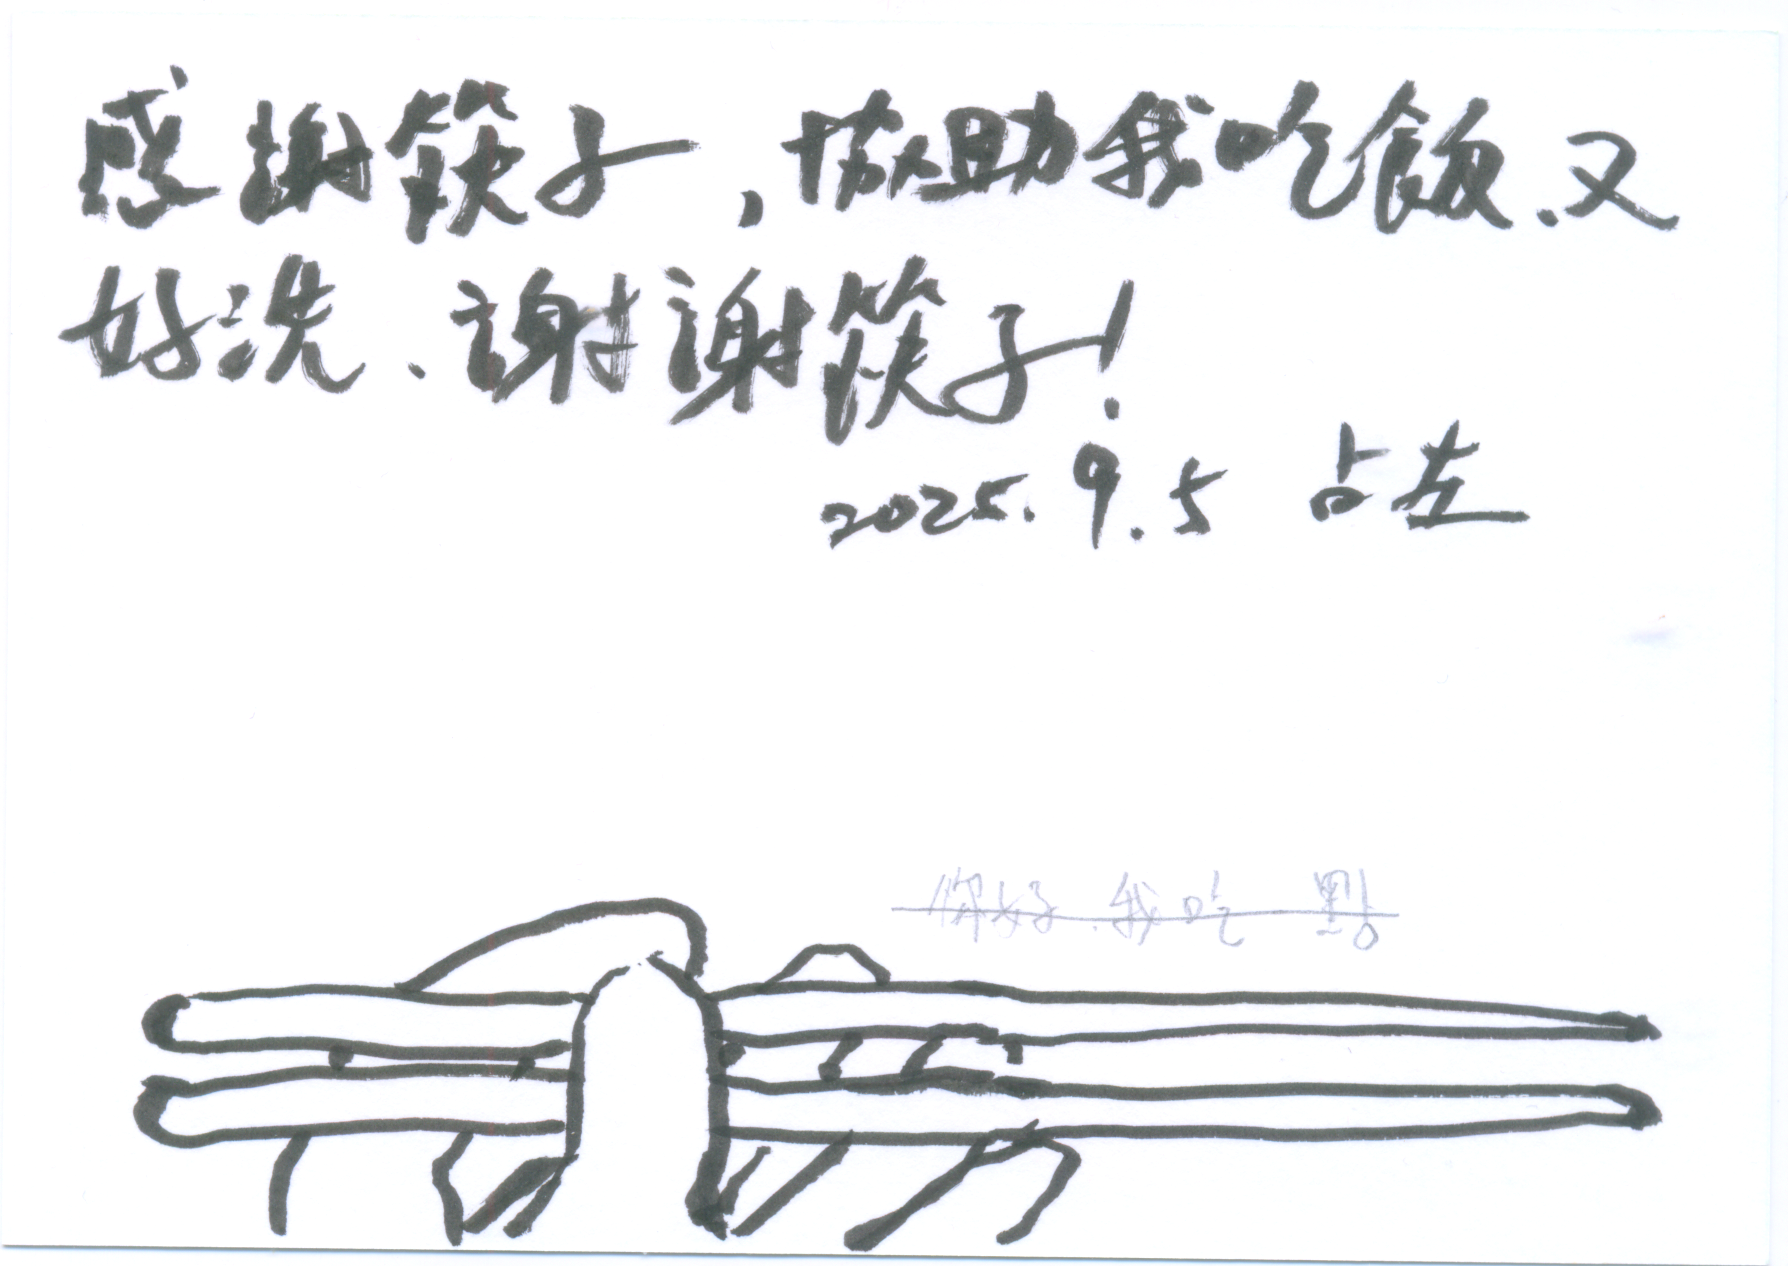 感謝筷子，協助我吃飯、又
好洗、謝謝筷子！
2025.9.5 占左
你好、我吃 點